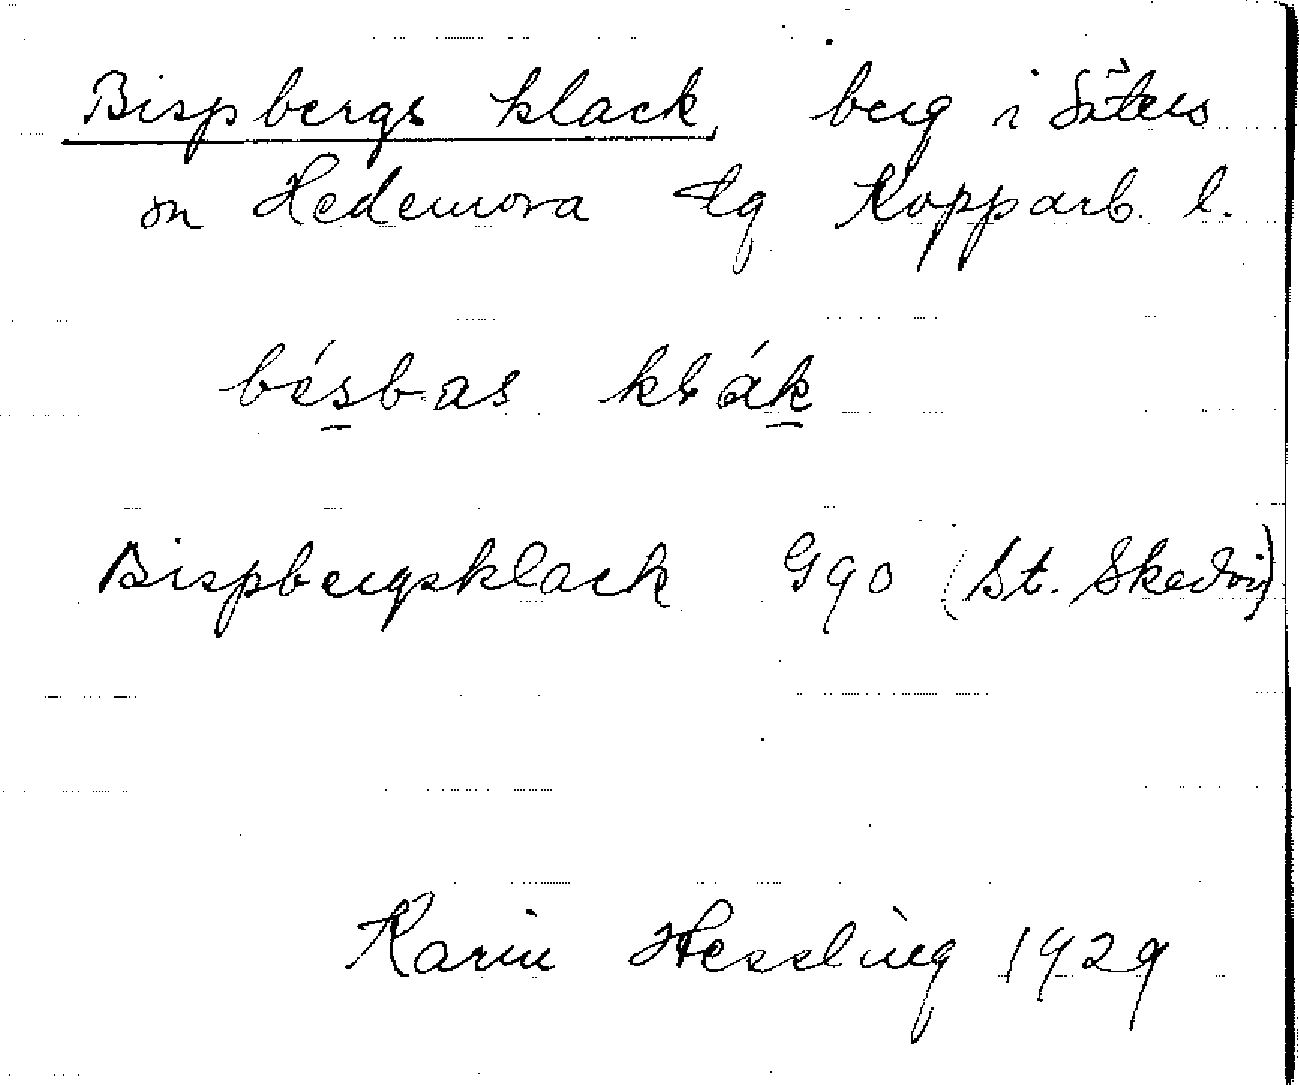 Bispbergs klack, berg i Säters
sn Hedemora tg Kopparb. l.
bésbas klák
Bispbergsklack G90 (St. Skedvi)
Karin Hessling 1929